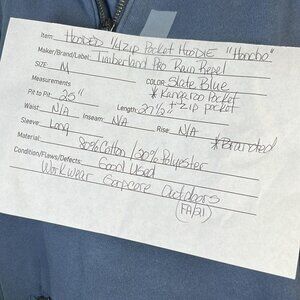 Item: HOODED 1/4 Zip Pocket HOODIE "Honcho"
Maker/Brand/Label: Timberland Pro Rain Repel
SIZE: M COLOR: Slate Blue
Measurements: * Kangaroo Pocket
Pit to Pit: 25" + Zip pocket
Waist: N/A Length: 27 1/2"
Sleeve: Long Inseam: N/A Rise: N/A * Branded
Material: 80% Cotton / 20% Polyester
Condition/Flaws/Defects: Good Used
Workwear Gorpcore Outdoors
(FA/21)